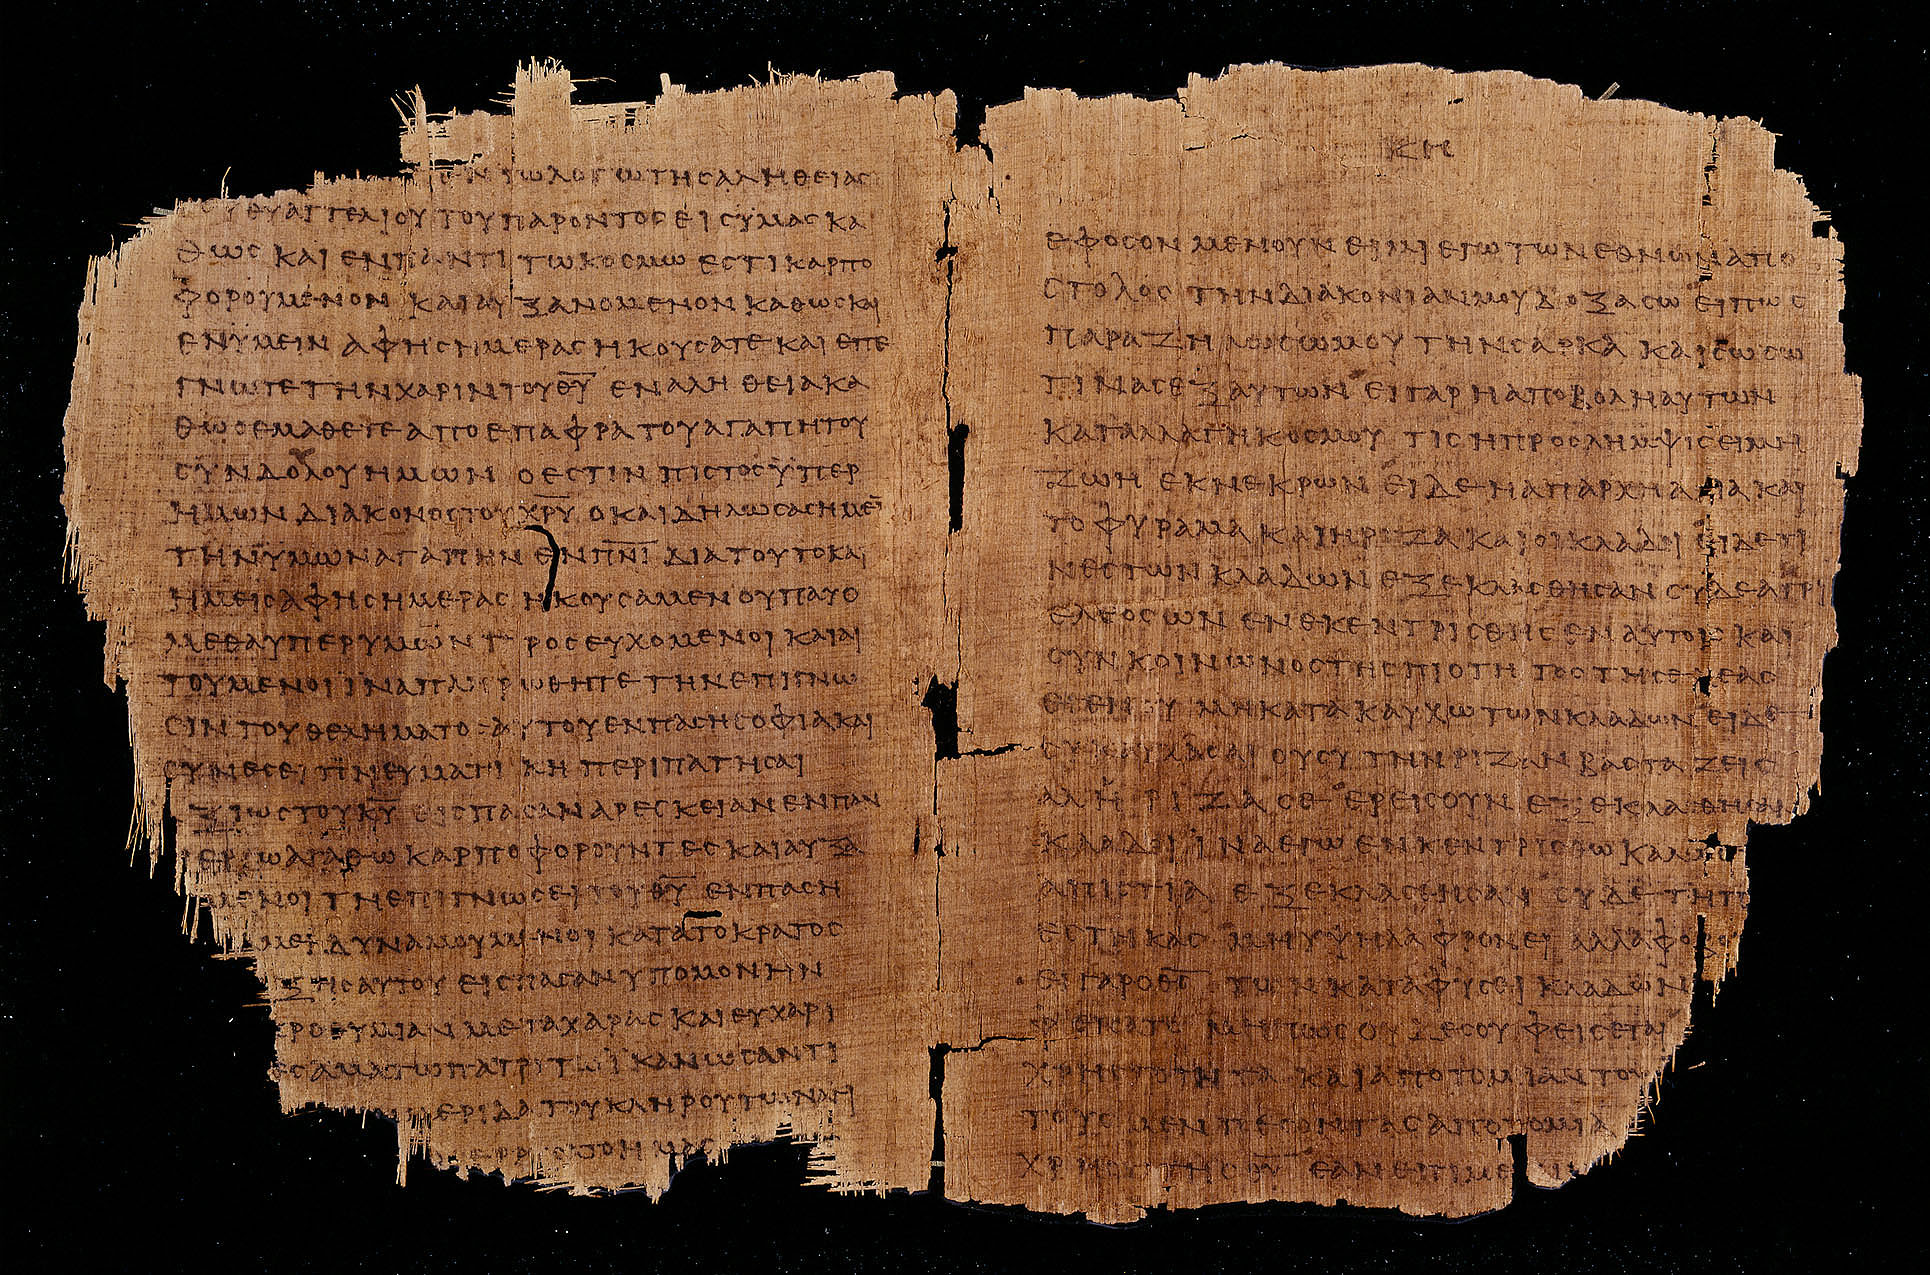 ΤΩΛΟΓΩΤΗϹΑΛΗΘΕΙΑϹ
ΤΟΥΕΥΑΓΓΕΛΙΟΥΤΟΥΠΑΡΟΝΤΟϹΕΙϹΫΜΑϹΚΑ
ΘΩϹ ΚΑΙΕΝΠΑΝΤΙ ΤΩΚΟϹΜΩ ΕϹΤΙΚΑΡΠΟ
ΦΟΡΟΥΜΕΝΟΝ ΚΑΙΑΥΞΑΝΟΜΕΝΟΝΚΑΘΩϹΚΑΙ
ΕΝΫΜΕΙΝ ΑΦΗϹΗΜΕΡΑϹΗΚΟΥϹΑΤΕΚΑΙΕΠΕ
ΓΝΩΤΕΤΗΝΧΑΡΙΝΤΟΥΘ̅Υ̅ ΕΝΑΛΗΘΕΙΑΚΑ
ΘΩϹΕΜΑΘΕΤΕΑΠΟΕΠΑΦΡΑΤΟΥΑΓΑΠΗΤΟΥ
ϹΥΝΔΟΛΟΥΗΜΩΝ ΟΕϹΤΙΝΠΙϹΤΟϹΫΠΕΡ
ΗΜΩΝΔΙΑΚΟΝΟϹΤΟΥΧ̅Ρ̅Υ̅ ΟΚΑΙΔΗΛΩϹΑϹΗΜΕΙ̅
ΤΗΝΫΜΩΝΑΓΑΠΗΝ ΕΝΠ̅Ν̅Ι̅ ΔΙΑΤΟΥΤΟΚΑΙ
ΗΜΕΙϹΑΦΗϹΗΜΕΡΑϹ ΗΚΟΥϹΑΜΕΝΟΥΠΑΥΟ
ΜΕΘΑΥΠΕΡΥΜΩΝΠΡΟϹΕΥΧΟΜΕΝΟΙ ΚΑΙΑΙ
ΤΟΥΜΕΝΟΙΙΝΑΠΛΗΡΩΘΗΤΕΤΗΝΕΠΙΓΝΩ
ϹΙΝΤΟΥΘΕΛΗΜΑΤΟϹΑΥΤΟΥΕΝΠΑϹΗϹΟΦΙΑΚΑΙ
ϹΥΝΕϹΕΙΠΝΕΥΜΑΤΙΚΗ ΠΕΡΙΠΑΤΗϹΑΙ
ΞΙΩϹΤΟΥΚ̅Υ̅ ΕΙϹΠΑϹΑΝΑΡΕϹΚΕΙΑΝΕΝΠΑΝ
ΕΡΓΩΑΓΑΘΩΚΑΡΠΟΦΟΡΟΥΝΤΕϹΚΑΙΑΥΞΑ
ΜΕΝΟΙΤΗΕΠΙΓΝΩϹΕΙΤΟΥΘ̅Υ̅ ΕΝΠΑϹΗ
ΜΕΙΔΥΝΑΜΟΥΜΕΝΟΙΚΑΤΑΤΟΚΡΑΤΟϹ
ΞΗϹΑΥΤΟΥΕΙϹΠΑϹΑΝΥΠΟΜΟΝΗΝ
ΚΡΟΘΥΜΙΑΝΜΕΤΑΧΑΡΑϹΚΑΙΕΥΧΑΡΙ
ΕϹΑΜΑΤΩΠΑΤΡΙΤΩΪΚΑΝΩϹΑΝΤΙ
ΜΕΡΙΔΑΤΟΥΚΛΗΡΟΥΤΩΝΑΓΙ
ΕΡΡΥϹΑΤΟΗΜΑϹ
ΚΗ
ΕΦΟϹΟΝ ΜΕΝΟΥΝΕΙΜΙΕΓΩΤΩΝΕΘΝΩΝΑΠΟ
ϹΤΟΛΟϹ ΤΗΝΔΙΑΚΟΝΙΑΝΜΟΥΔΟΞΑϹΩ ΕΙΠΩϹ
ΠΑΡΑΖΗΛΩϹΩΜΟΥ ΤΗΝϹΑΡΚΑ ΚΑΙϹΩϹΩ
ΤΙΝΑϹΕΞΑΥΤΩΝ ΕΙΓΑΡΗΑΠΟΒΟΛΗΑΥΤΩΝ
ΚΑΤΑΛΛΑΓΗΚΟϹΜΟΥ ΤΙϹΗΠΡΟϹΛΗΜΨΙϹΕΙΜΗ
ΖΩΗ ΕΚΝΕΚΡΩΝ ΕΙΔΕΗΑΠΑΡΧΗΑΓΙΑΚΑΙ
ΤΟΦΥΡΑΜΑΚΑΙΗΡΙΖΑΚΑΙΟΙΚΛΑΔΟΙ ΕΙΔΕΤΙ
ΝΕϹΤΩΝΚΛΑΔΩΝΕΞΕΚΛΑϹΘΗϹΑΝϹΥΔΕΑΓΡΙ
ΕΛΕΟϹΩΝ ΕΝΕΚΕΝΤΡΙϹΘΗϹΕΝΑΥΤΟΙϹΚΑΙ
ϹΥΝΚΟΙΝΩΝΟϹΤΗϹΠΙΟΤΗΤΟϹΤΗϹΕΛΕΑϹ
ΕΓΕΝΟΥ ΜΗΚΑΤΑΚΑΥΧΩΤΩΝΚΛΑΔΩΝ ΕΙΔΕ
ϹΥΚΑΥΧΑϹΑΙ ΟΥϹΥΤΗΝΡΙΖΑΝΒΑϹΤΑΖΕΙϹ
ΑΛΗ ΡΙΖΑϹΕ ΕΡΕΙϹΟΥΝ ΕΞΕΚΛΑϹΘΗϹΑΝ
ΚΛΑΔΟΙΙΝΑΕΓΩΕΝΚΕΝΤΡΙϹΘΩΚΑΛΩϹ
ΑΠΙϹΤΙΑ ΕΞΕΚΛΑϹΘΗϹΑΝ ϹΥΔΕΤΗΠ
ΕϹΤΗΚΑϹ ΜΗΥΨΗΛΑΦΡΟΝΕΙ ΑΛΛΑΦΟ
ΕΙΓΑΡΟΘ̅Ϲ̅ ΤΩΝΚΑΤΑΦΥϹΕΙΚΛΑΔΩΝ
ΦΕΙϹΑΤΟ ΜΗΠΩϹΟΥΔΕϹΟΥΦΕΙϹΕΤΑΙ
ΧΡΗϹΤΟΤΗΤΑ ΚΑΙΑΠΟΤΟΜΙΑΝΤΟΥ
ΤΟΥϹΜΕΝΠΕϹΟΝΤΑϹΑΠΟΤΟΜΙΑ
ΧΡΗϹΤΟΤΗϹΘ̅Υ̅ ΕΑΝΕΠΙΜΕ